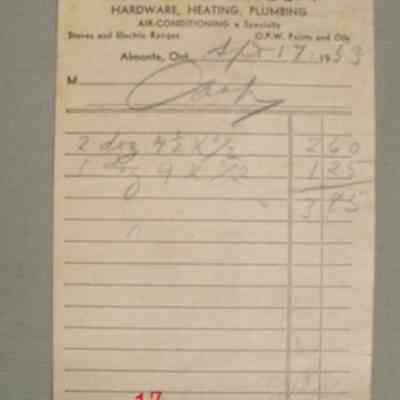 HARDWARE, HEATING, PLUMBING
AIR-CONDITIONING a Specialty
Stoves and Electric Ranges O.P.W. Paints and Oils
Almonte, Ont. Apr 17 1953
M Cash
2 doz 4½ x ½ 2 60
1 doz 9 x ½ 1 25
3 85
17